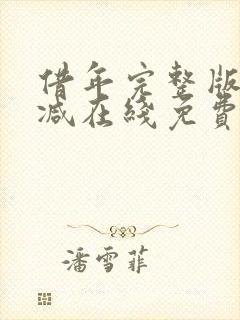 借年完整版
减在线免費
潘雪菲